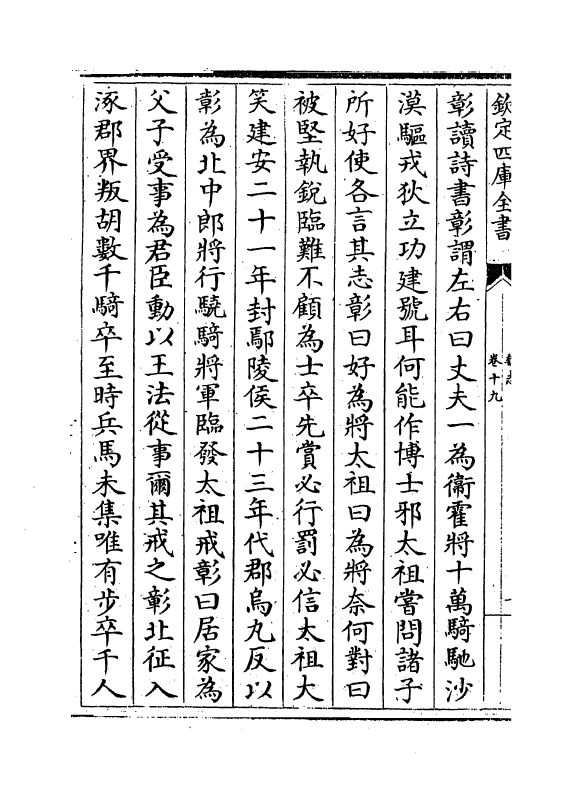 欽定四庫全書
卷十九
彰讀詩書彰謂左右曰丈夫一為衞霍將十萬騎馳沙
漠驅戎狄立功建號耳何能作博士邪太祖嘗問諸子
所好使各言其志彰曰好為將太祖曰為將奈何對曰
被堅執銳臨難不顧為士卒先賞必行罰必信太祖大
笑建安二十一年封鄢陵侯二十三年代郡烏丸反以
彰為北中郎將行驍騎將軍臨發太祖戒彰曰居家為
父子受事為君臣動以王法從事爾其戒之彰北征入
涿郡界叛胡數千騎卒至時兵馬未集唯有步卒千人